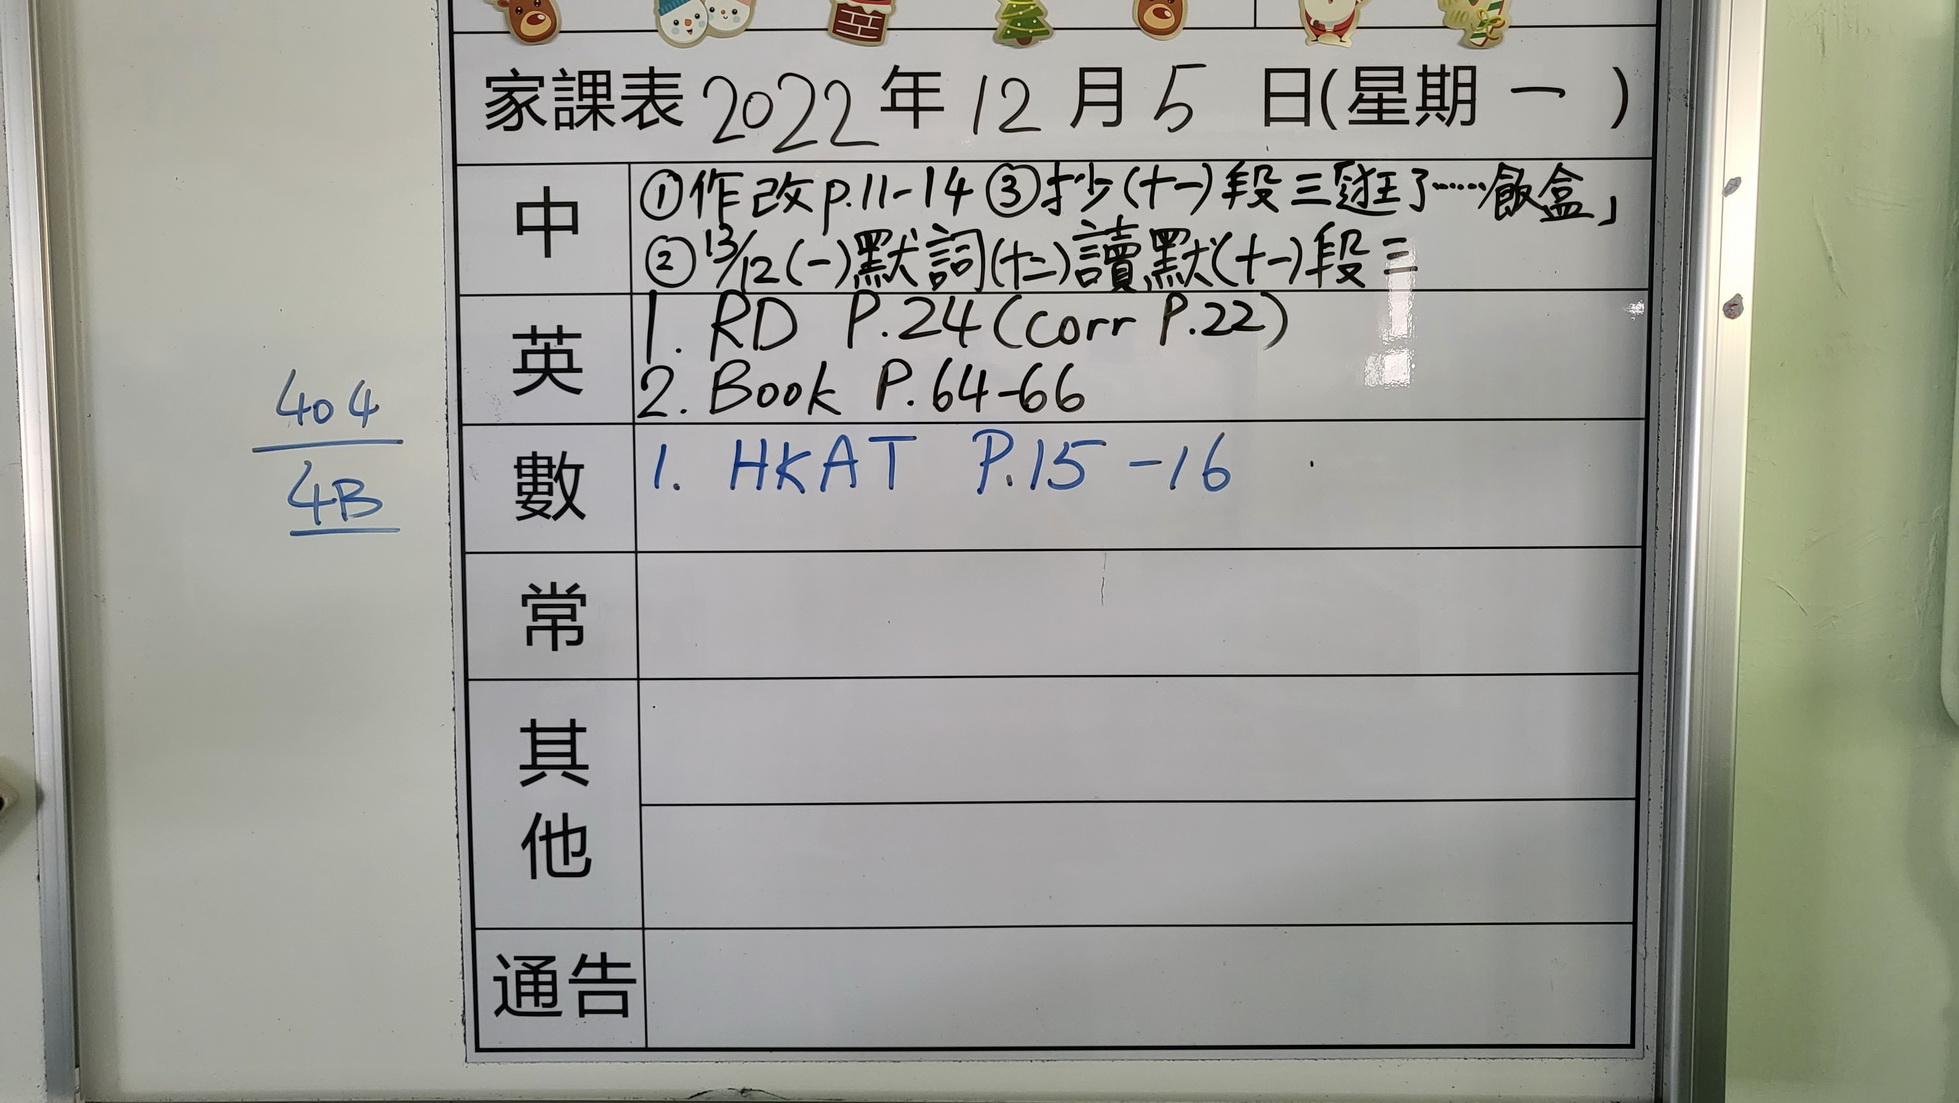 家課表 2022 年 12 月 5 日(星期 一 )
中
①作改p.11-14 ③抄(十一)段三「逛了……飯盒」
②13/12(一)默詞(十二)讀默(十一)段三
英
1. RD P.24(corr P.22)
2. Book P.64-66
404
4B
數
1. HKAT P.15-16
常
其他
通告